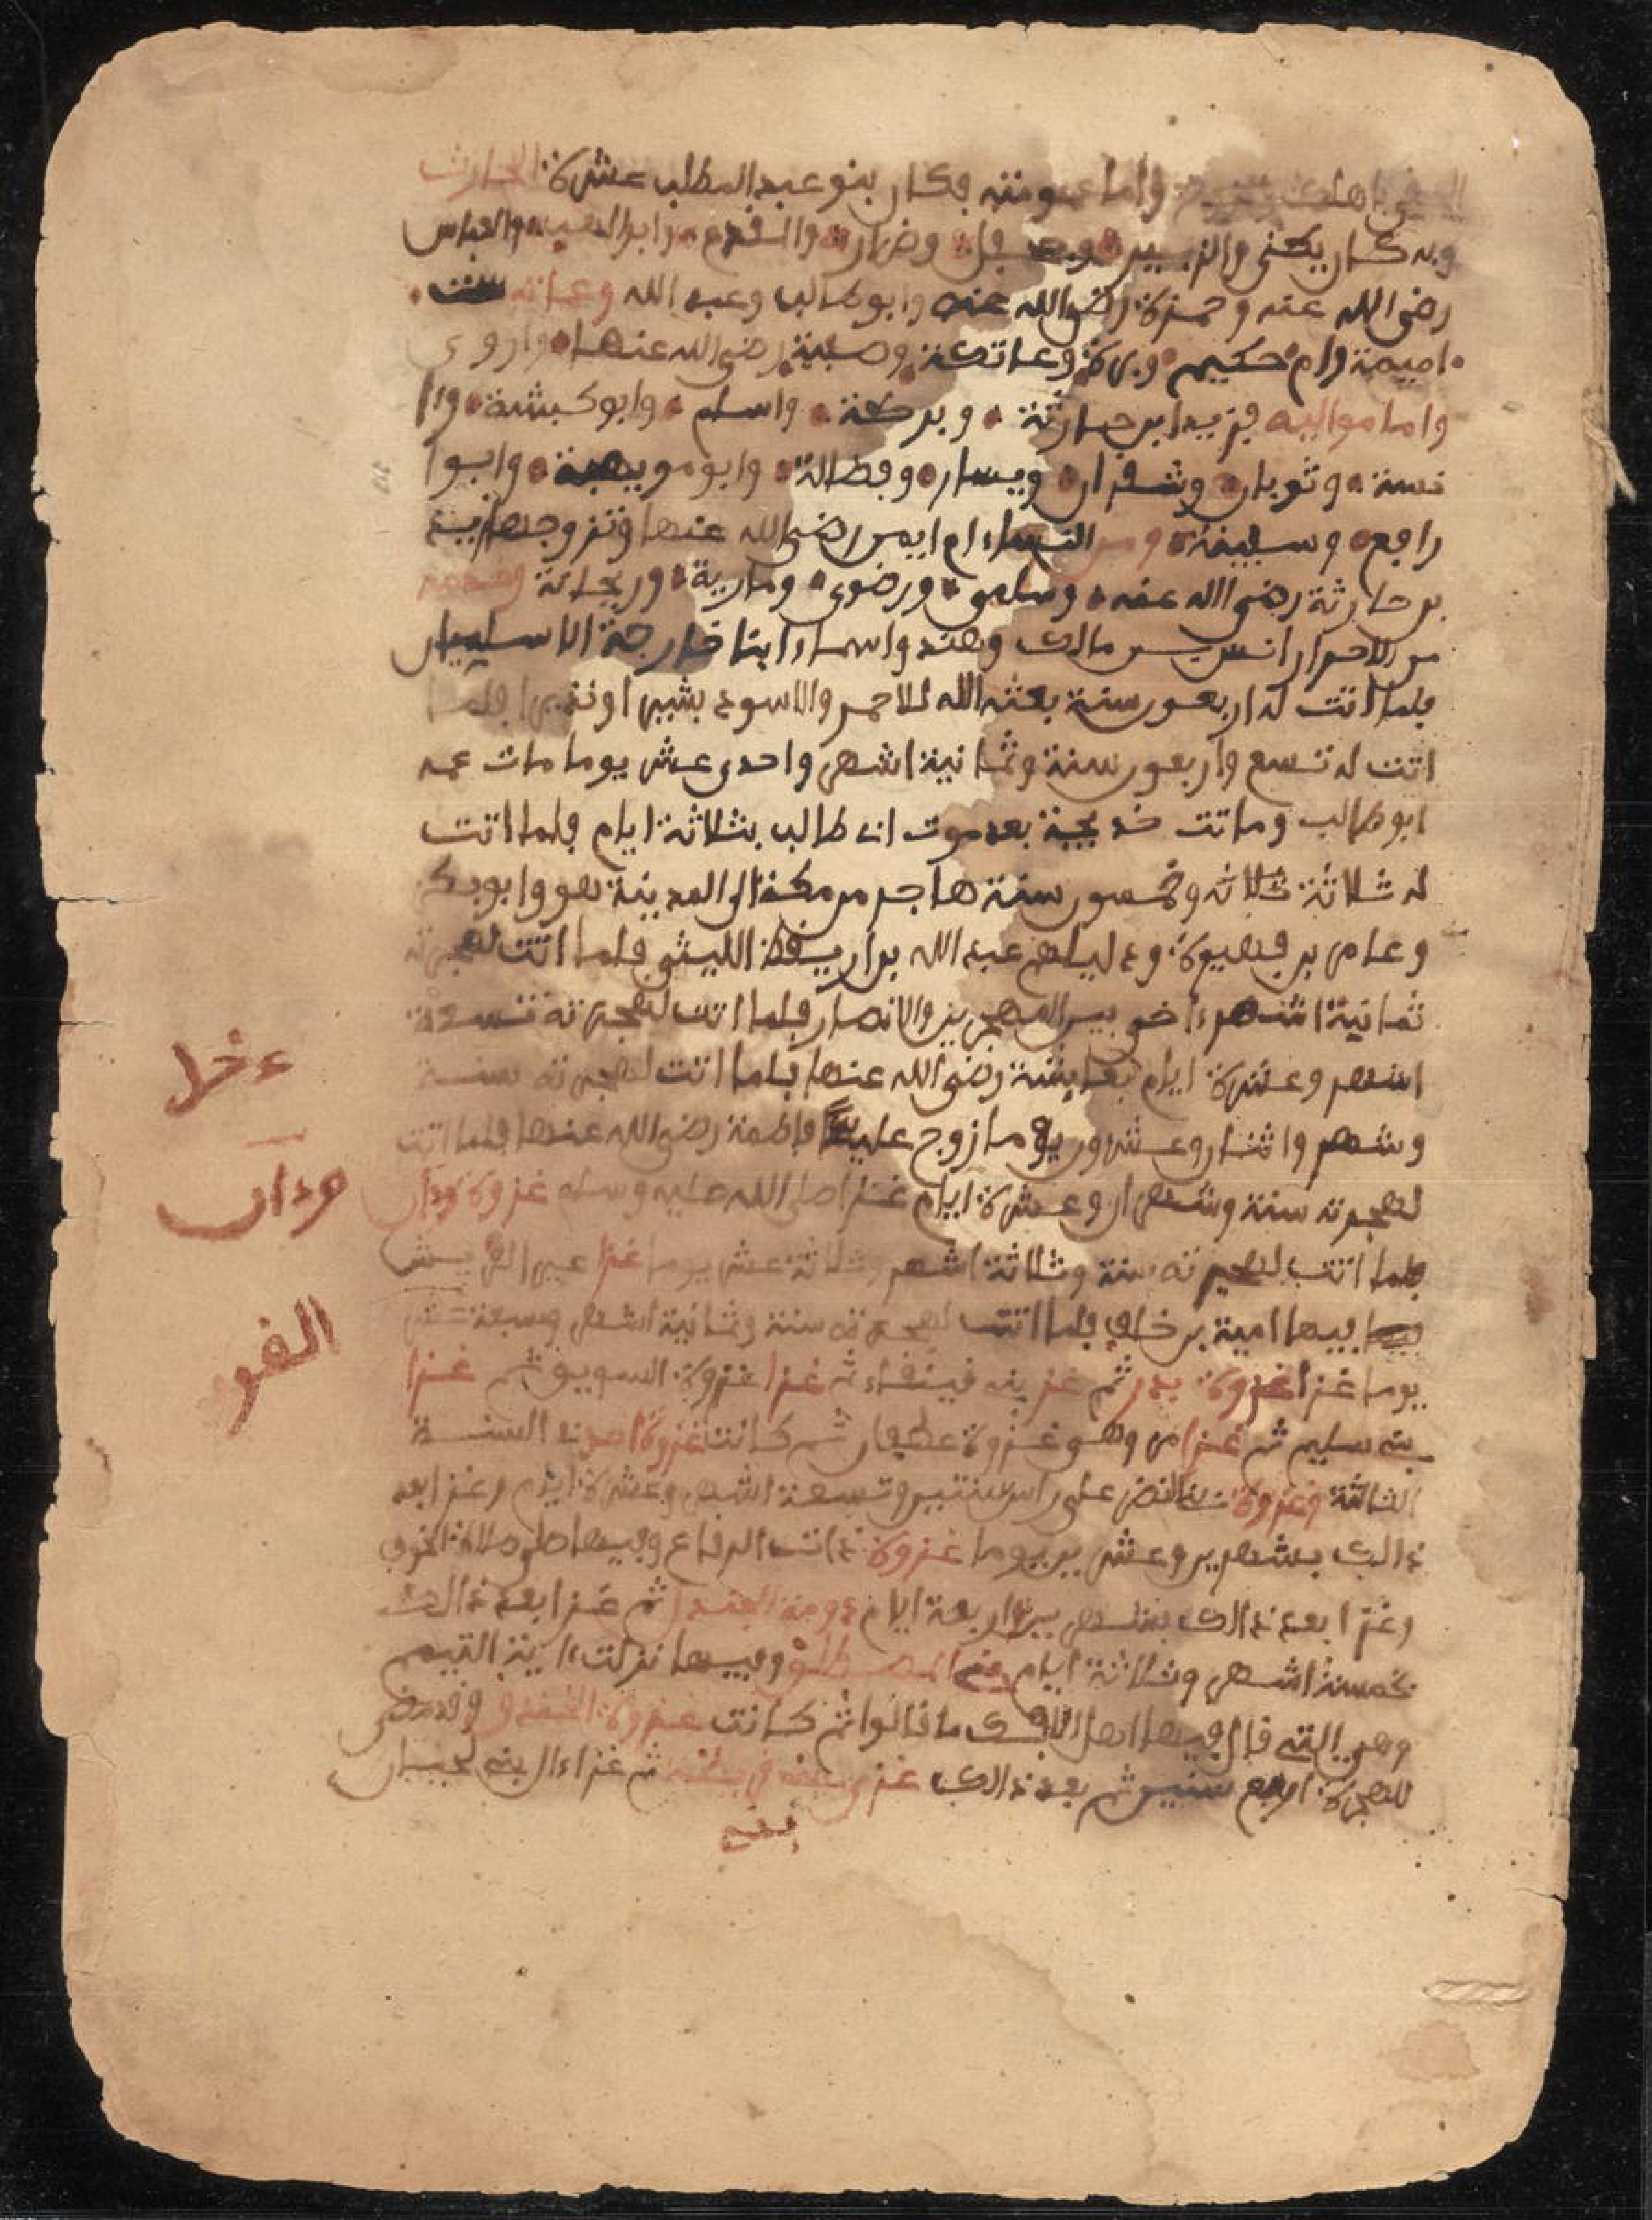 واما عمومته فكان بنو عبد المطلب عشرة الحارث
وبه كان يكنى والزبير وضرار والعباس
رضي الله عنه وحمزة رضي الله عنه وابو طالب وعبد الله وعماته ست
اميمة وام حكيم وبرة وعاتكة وصفية رضي الله عنها واروى
واما مواليه فزيد ابن حارثة وبركة واسلم وابو كبشة وا
نسة وثوبان وشقران ويسار وفضالة وابو مويهبة وابوا
رافع وسفينة ومن النساء ام ايمن رضي الله عنها وتزوجها زيد
بن حارثة رضي الله عنه وسلمى ورضوى ومارية وريحانة
من الاحرار انس بن مالك وهند واسماء ابنا خارجة الاسلميان
فلما اتت له اربعون سنة بعثه الله للاحمر والاسود بشيرا ونذيرا فلما
اتت له تسع واربعون سنة وثمانية اشهر واحدى عشر يوما مات عمه
ابو طالب وماتت خديجة بعد موت ابي طالب بثلاثة ايام فلما اتت
له ثلاثة ثلاثه وخمسون سنة هاجر من مكة الى المدينة هو وابو بكر
وعامر بن فهيرة ودليلهم عبد الله بن اريقط الليثي فلما اتت لهجرته
ثمانية اشهر ءاخى بين المهجرين والانصار فلما اتت لهجرته تسعة
اشهر وعشرة ايام بعايشة رضي الله عنها فلما اتت لهجرته سنة
وشهر واثنان وعشرون يوما زوج عليا فاطمة رضي الله عنها فلما اتت
لهجرته سنة وشهران وعشرة ايام غزا صلى الله عليه وسلم غزوة ودان
فلما اتت لهجرته سنة وثلاثة اشهر وثلاثة عشر يوما غزا عير القريش
فيها امية بن خلف فلما اتت لهجرته سنة وثمانية اشهر وسبعة عشر
يوما غزا غزوة بدر ثم غزا بنى قينقاء ثم غزا غزوة السويق ثم غزا
بنى سليم ثم غزا امر وهو غزوة غطفان ثم كانت غزوة احد في السنة
الثالثة وغزوة بنى النضر على راس سنتين وتسعة اشهر وعشرة ايام وغزا بعد
ذالك بشهرين وعشرين يوما غزوة ذات الرقاع وفيها صلى صلاة الخوف
وغزا بعد ذالك بشهرين واربعة ايام دومة الجندل ثم غزا بعد ذالك
بخمسة اشهر وثلاثة ايام بنى المصطلق وفيها نزلت ءاية التيمم
وهى التي قال فيها اهل الافك ما قالوا ثم كانت غزوة الخندق وقد مضى
للهجرة اربع سنين ثم بعد ذالك غزى بنى قريظة ثم غزاء الى بنى لحيان
ودان